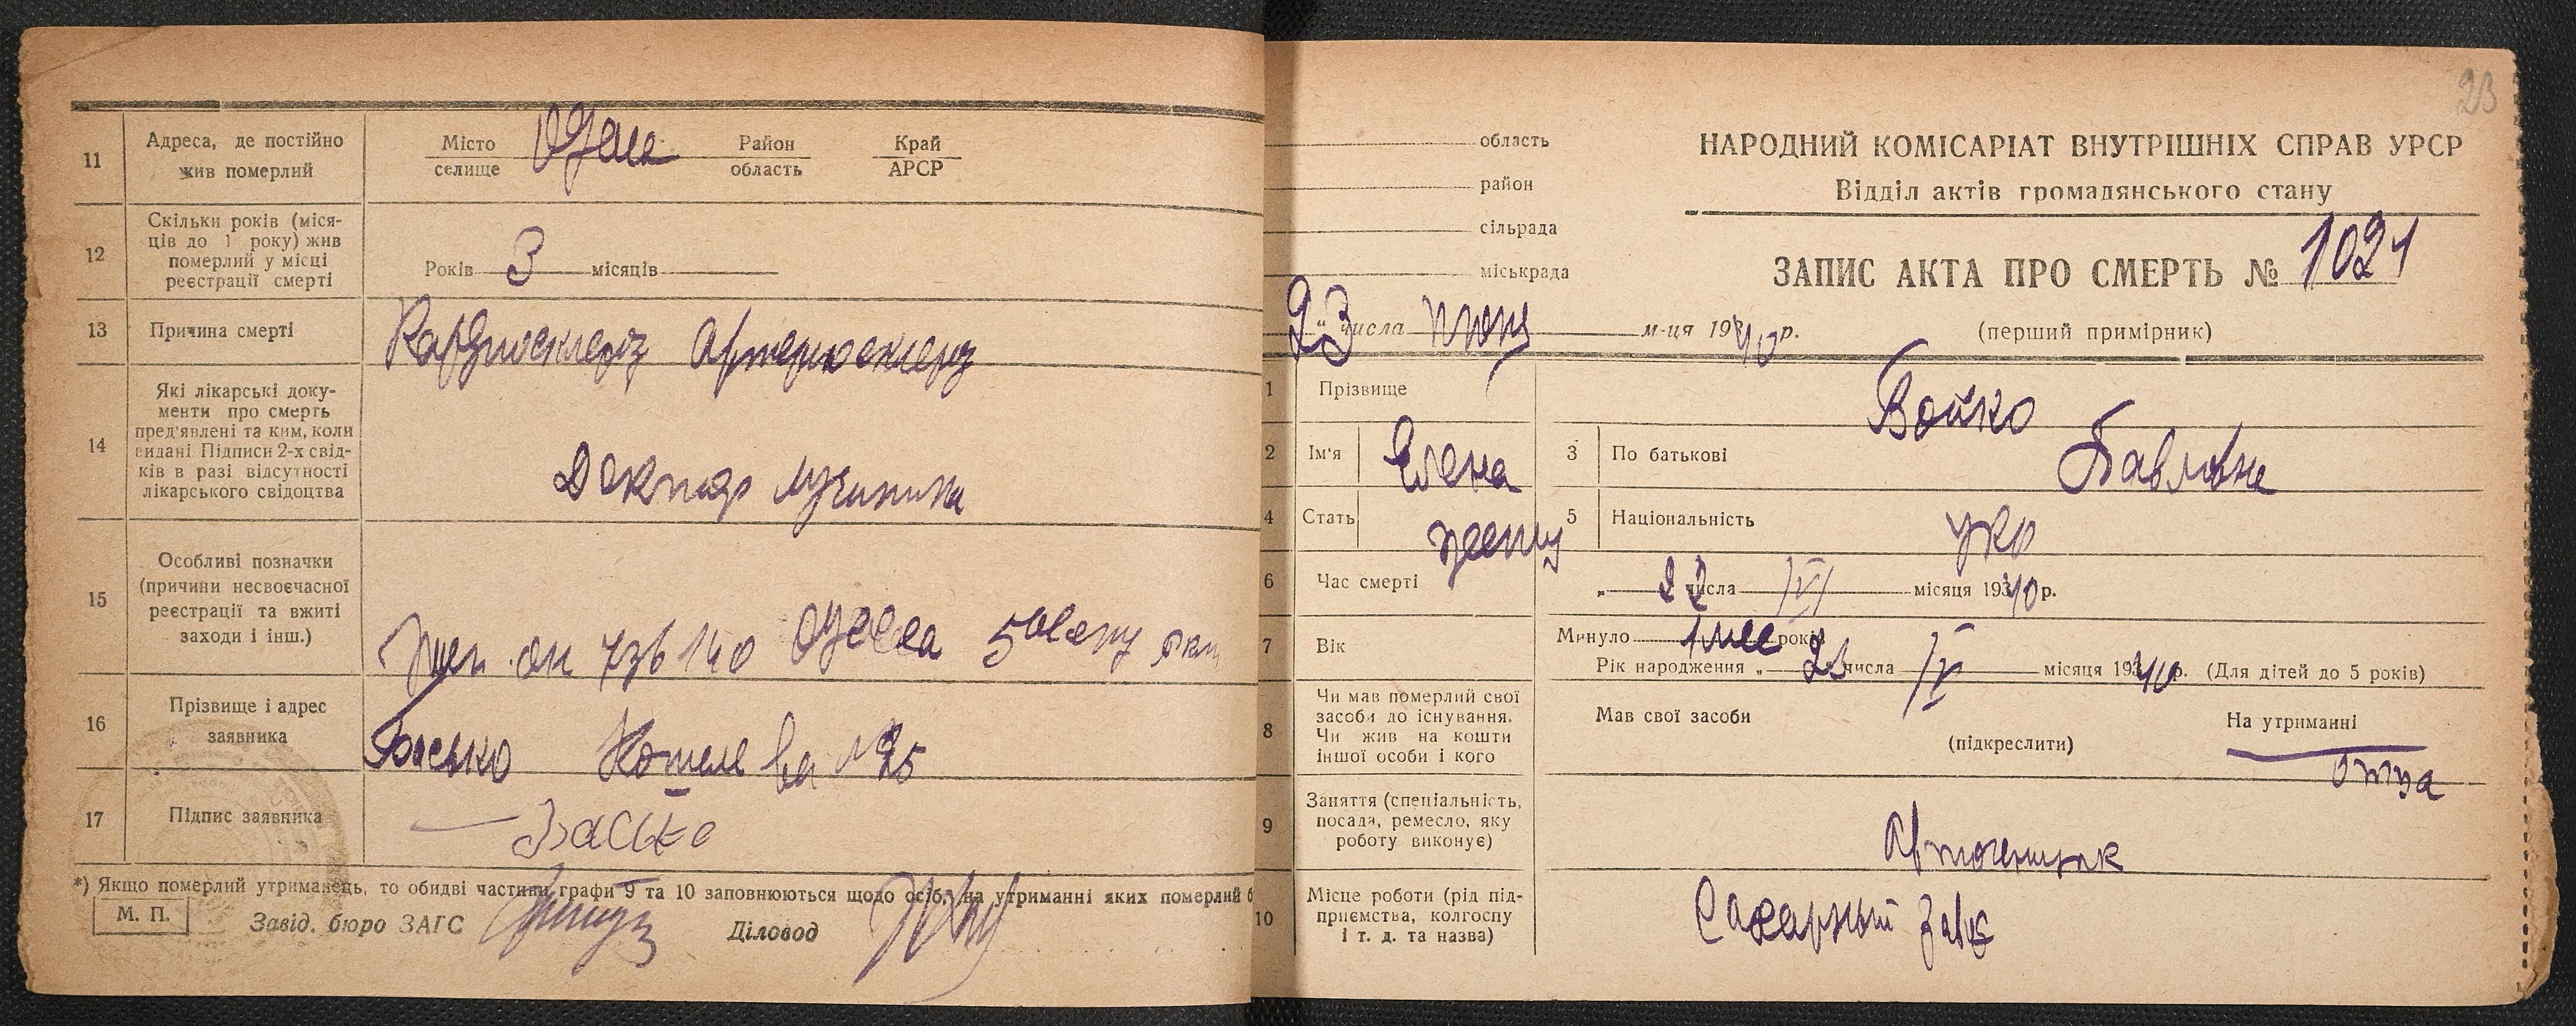 11 Адреса, де постійно жив померлий Місто селище Одеса Район область Край АРСР
12 Скільки років (міся-
ців до 1 року) жив
померлий у місці
реєстрації смерті
Років 3 місяців
13 Причина смерті Кардиосклероз Артериосклероз
14 Які лікарські доку-
менти про смерть
пред'явлені та ким, коли
видані Підписи 2-х свід-
ків в разі відсутності
лікарського свідоцтва
Доктор
15 Особливі позначки
(причини несвоєчасної
реєстрації та вжиті
заходи і інш.)
140 Одесса
16 Прізвище і адрес
заявника
17 Підпис заявника
*) Якщо померлий утриманець, то обидві частини графи 9 та 10 заповнюються щодо осіб, на утриманні яких померлий б
М. П. Завід. бюро ЗАГС Діловод
23
область
район
сільрада
міськрада
НАРОДНИЙ КОМІСАРІАТ ВНУТРІШНІХ СПРАВ УРСР
Відділ актів громадянського стану
ЗАПИС АКТА ПРО СМЕРТЬ № 1021
(перший примірник)
23 числа июня м-ця 1940 р.
1 Прізвище Бойко
2 Ім'я Елена 3 По батькові Павловна
4 Стать 5 Національність укр
6 Час смерті „ 22 числа VI місяця 1940 р.
7 Вік Минуло 1 мес років
Рік народження „ 23 числа IV місяця 1940 р. (Для дітей до 5 років)
8 Чи мав померлий свої
засоби до існування.
Чи жив на кошти
іншої особи і кого
Мав свої засоби (підкреслити) На утриманні
отца
9 Заняття (спеціальність,
посада, ремесло, яку
роботу виконує)
10 Місце роботи (рід під-
приємства, колгоспу
і т. д. та назва)
Сахарный завод